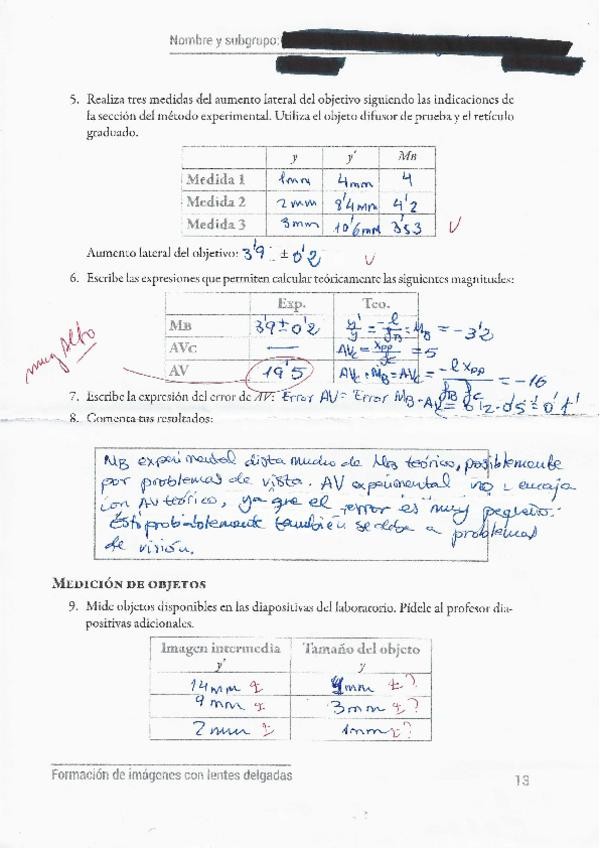 Nombre y subgrupo:
5. Realiza tres medidas del aumento lateral del objetivo siguiendo las indicaciones de
la sección del método experimental. Utiliza el objeto difusor de prueba y el retículo
graduado.
y y' MB
Medida 1 1mm 4mm 4
Medida 2 2mm 8'4mm 4'2
Medida 3 3mm 10'6mm 3'53
Aumento lateral del objetivo: 3'9 ± 0'2
6. Escribe las expresiones que permiten calcular teóricamente las siguientes magnitudes:
Exp. Teo.
MB 3'9±0'2 y'/y = -l/fB = MB = -3'2
AVc — AVc = xpp/fc = 5
muy alto
AV 19'5 AVc·MB = AV = -l xpp/fB fc = -16
7. Escribe la expresión del error de AV: Error AV = Error MB · AVc = 0'2 · 0'5 = 0'1
8. Comenta tus resultados:
MB experimental dista mucho de MB teórico, posiblemente
por problemas de vista. AV experimental no encaja
con AV teórico, ya que el error es muy pequeño.
Esto probablemente también se deba a problemas
de visión.
MEDICIÓN DE OBJETOS
9. Mide objetos disponibles en las diapositivas del laboratorio. Pídele al profesor dia-
positivas adicionales.
Imagen intermedia Tamaño del objeto
y' y
14mm ± mm ±?
9mm ± 3mm ±?
2mm ± 1mm ±?
Formación de imágenes con lentes delgadas 13